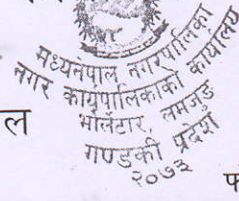 मध्यनेपाल नगरपालिका
नगर कार्यपालिकाको कार्यालय
भोर्लेटार, लमजुङ
गण्डकी प्रदेश
२०७३
ल